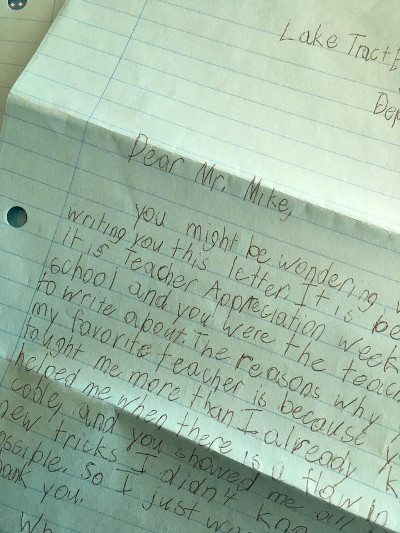 Lake Tract
Dear Mr. Mike,
you might be wondering
writing you this letter. It is
It is Teacher Appreciation Week
school and you were the
to write about. The reasons why
my favorite teacher is because
taught me more than I already
helped me when there is a flaw in
code, and you showed me all
new tricks I didn't
So I just
you.